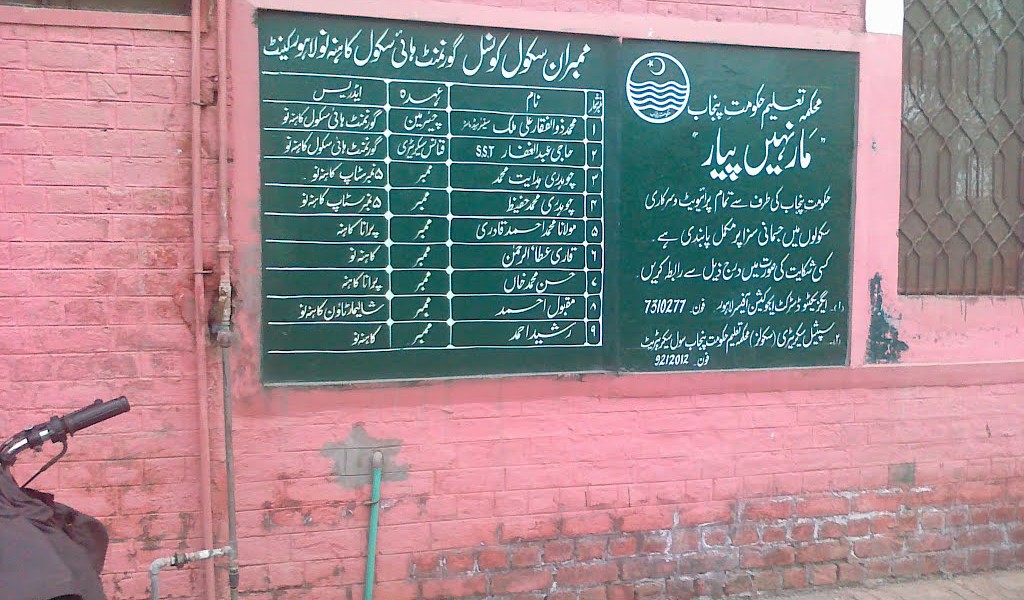 ممبران سکول کونسل گورنمنٹ ہائی سکول کاہنہ نو لاہور کینٹ
نمبر شمار نام عہدہ ایڈریس
۱ محمد ذوالفقار علی ملک سینئر ہیڈماسٹر چیئرمین گورنمنٹ ہائی سکول کاہنہ نو
۲ حاجی عبدالغفار S.S.T فنانس سیکریٹری گورنمنٹ ہائی سکول کاہنہ نو
۳ چوہدری ہدایت محمد ممبر ۵ نمبر سٹاپ کاہنہ نو
۴ چوہدری محمد حفیظ ممبر ۵ نمبر سٹاپ کاہنہ نو
۵ مولانا محمد احمد قادری ممبر پرانا کاہنہ
۶ قاری عطاء الرحمٰن ممبر کاہنہ نو
۷ حسن محمد خاں ممبر پرانا کاہنہ
۸ مقبول احمد ممبر شالیمار ٹاؤن کاہنہ نو
۹ رشید احمد ممبر کاہنہ نو
محکمہ تعلیم حکومت پنجاب
"مار نہیں پیار"
حکومت پنجاب کی طرف سے تمام پرائیویٹ و سرکاری
سکولوں میں جسمانی سزا پر مکمل پابندی ہے۔
کسی شکایت کی صورت میں درج ذیل سے رابطہ کریں
۱۔ ایگزیکٹو ڈسٹرکٹ ایجوکیشن آفیسر لاہور فون۔ 7310277
۲۔ سپیشل سیکریٹری (سکولز) محکمہ تعلیم حکومت پنجاب سول سیکرٹریٹ
فون۔ 9212012